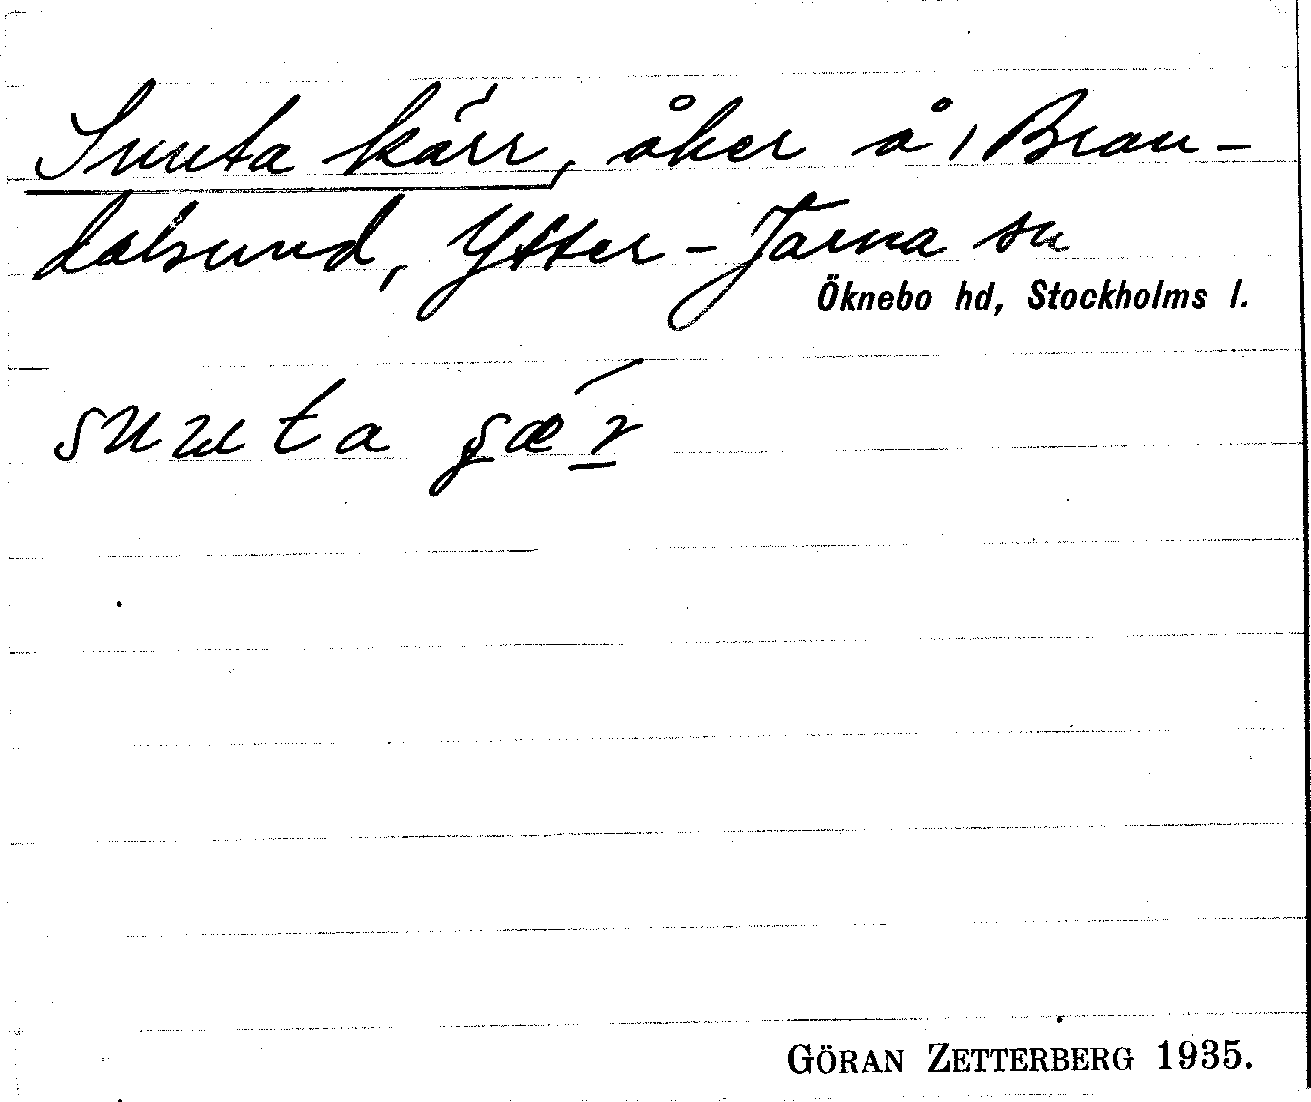 Snuta kärr, åker å 1 Bran-
dalsund, Ytter-Järna sn
Öknebo hd, Stockholms l.
snuta
GÖRAN ZETTERBERG 1935.